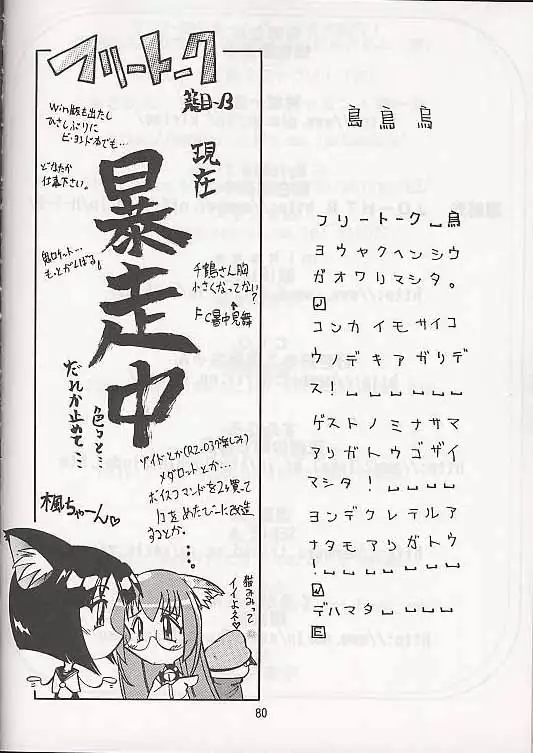 フリートーク
籠目-B
Win版も出たし
ひさしぶりに
ビヨンド本でも…
どなたか
仕事下さい。
鬼ロケット…
もっとがんばる。
現在
暴走中
千鶴さん胸
小さくなってない?
FC暑中見舞
だれか止めて…
色々と…
ゾイドとか(RZ-03が楽しみ)
メダロットとか…
ボイスコマンドを2ヶ買って
1コをめたびーに改造
するとか。
…。
楓ちゃーん♡
猫みみって
イイよネ♡
鳥 鳥 鳥
フリートーク_鳥
ヨウヤクヘンシウ
ガオワリマシタ。
コンカイモサイコ
ウノデキアガリデ
ス!_ _ _ _ _ _
ゲストノミナサマ
アリガトウゴザイ
マシタ!_ _ _ _
ヨンデクレテルア
ナタモアリガトウ
!_ _ _ _ _ _ _
デハマタ_ _ _ _
E
80